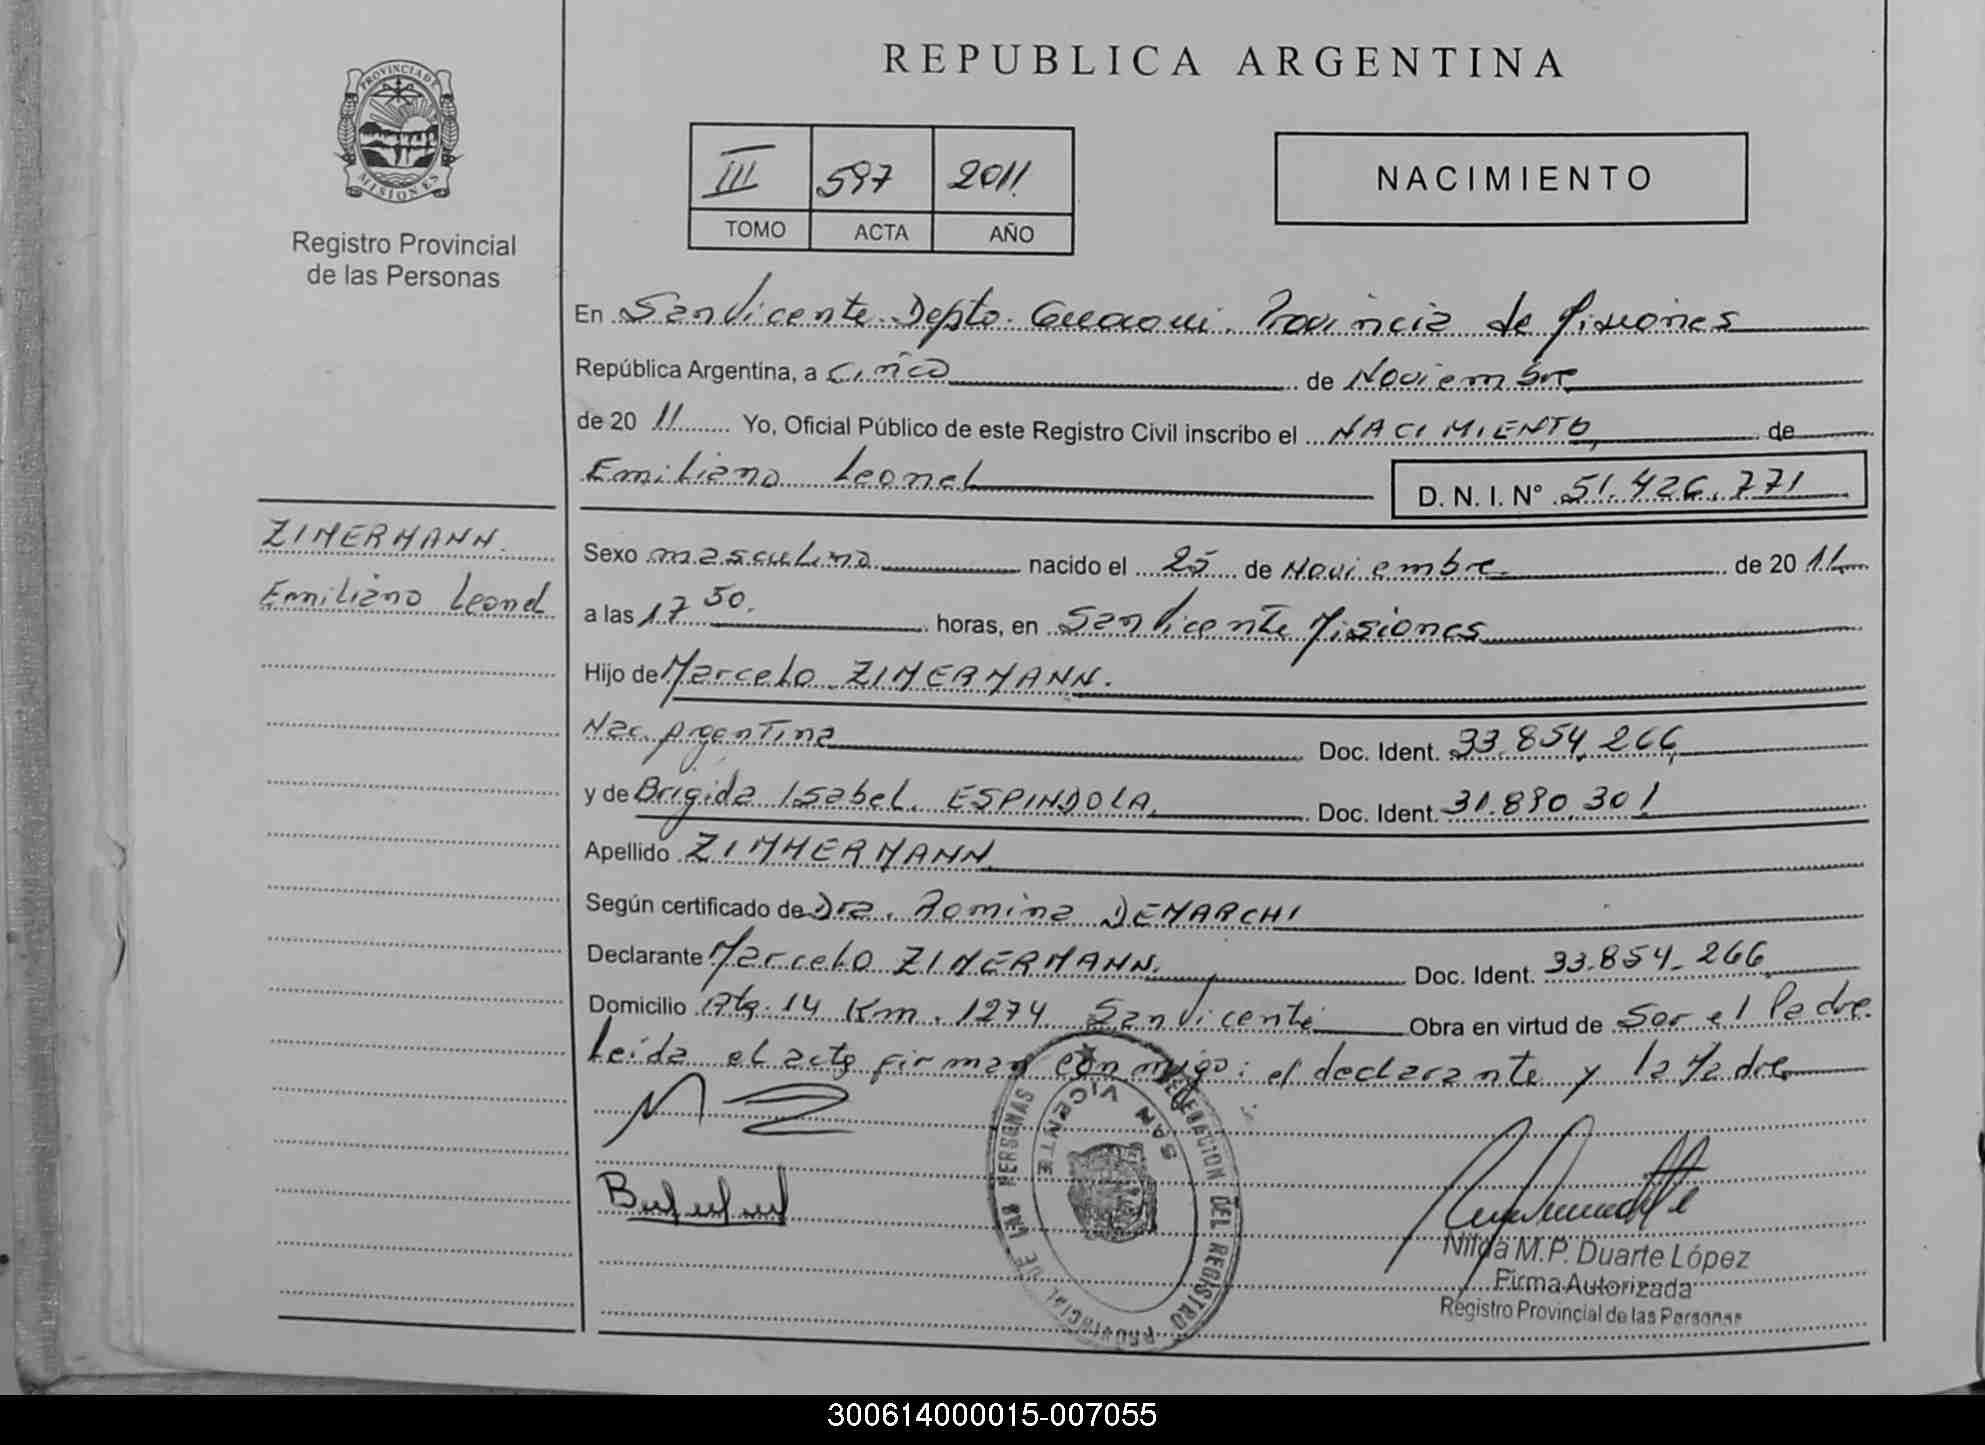 REPUBLICA ARGENTINA
PROVINCIA DE MISIONES
Registro Provincial
de las Personas
III 597 2011
TOMO ACTA AÑO
NACIMIENTO
En San Vicente Depto. Guarani. Provincia de Misiones
República Argentina, a Cinco de Noviembre
de 20 11 Yo, Oficial Público de este Registro Civil inscribo el NACIMIENTO, de
Emiliano Leonel D. N. I. Nº 51.426.771
ZIMERMANN.
Emiliano Leonel
Sexo masculino nacido el 25 de Noviembre de 20 11
a las 17 50. horas, en San Vicente Misiones
Hijo de Marcelo ZIMERMANN.
Nac. Argentina Doc. Ident. 33.854.266,
y de Brigida Isabel. ESPINDOLA, Doc. Ident. 31.890.301
Apellido ZIMMERMANN
Según certificado de Dra. Romina DEMARCHI
Declarante Marcelo ZIMERMANN. Doc. Ident. 33.854.266
Domicilio Km. 1274 San Vicente Obra en virtud de Ser el Padre.
Leída el acta firman conmigo: el declarante y la Madre
DELEGACION DEL REGISTRO PROVINCIAL DE LAS PERSONAS
SAN VICENTE
Nilda M.P. Duarte López
Firma Autorizada
Registro Provincial de las Personas
300614000015-007055